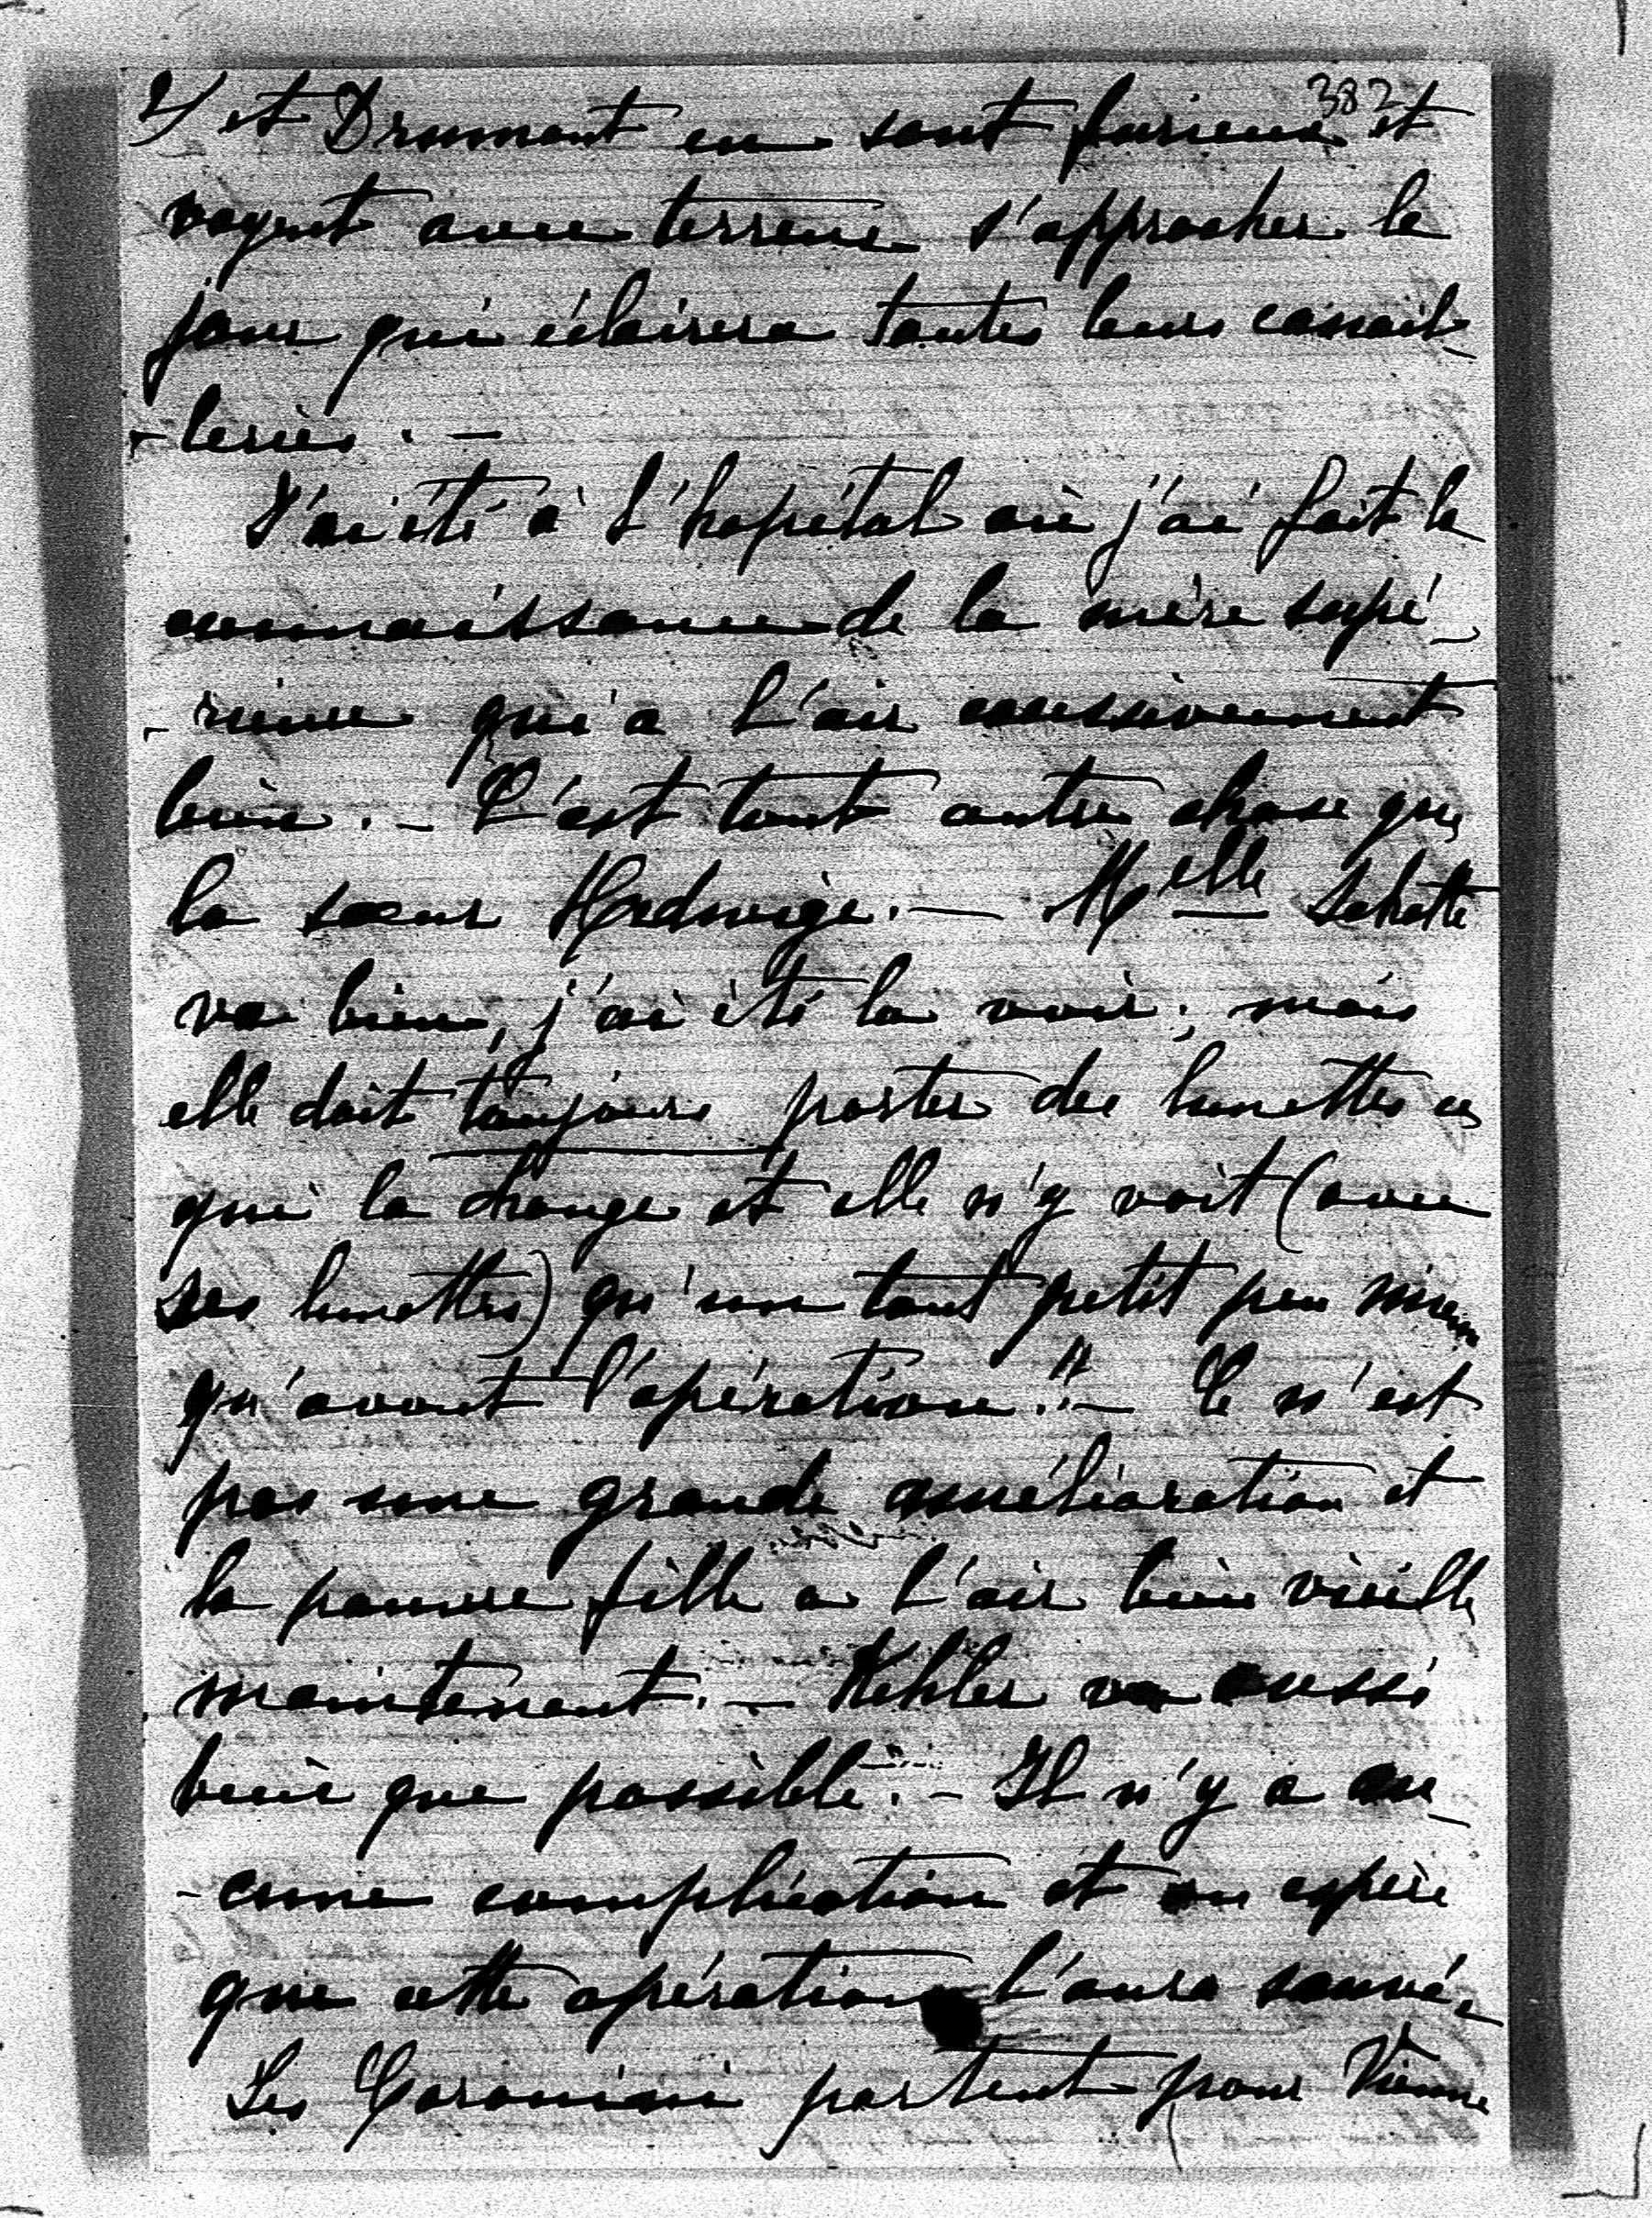 382
2/ et Drumont en sont furieux et
voyent avec terreur s'approcher le
jour qui éclairera toutes leurs canail-
-leries. -
J'ai été à l'hopital où j'ai fait la
connaissance de la mère supé-
-rieure qui a l'air excessivement
bien. - C'est tout autre chose que
la sœur Hedwige. - Melle Schette
va bien, j'ai été la voir; mais
elle doit toujours porter des lunettes ce
qui la change et elle n'y voit (avec
ses lunettes) qu'un tout petit peu mieux
qu'avant l'opération!! - Ce n'est
pas une grande amélioration et
la pauvre fille a l'air bien vieille
maintenant. - Kehler va aussi
bien que possible. - Il n'y a au-
-cune complication et on espère
que cette opération l'aura sauvé. -
Les Coronini partent pour Vienne